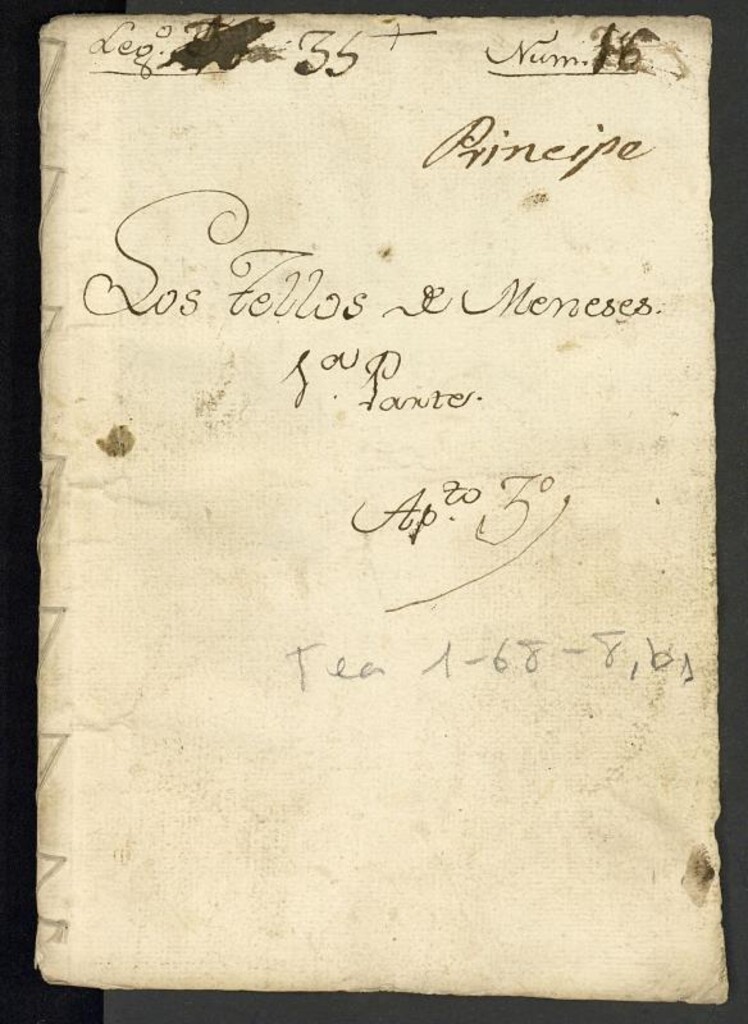 Leg.º 35 + Num. 16
Principe
Los Tellos de Meneses.
1.ª Parte.
Ap.to 3º
Tea 1-68-8, b1